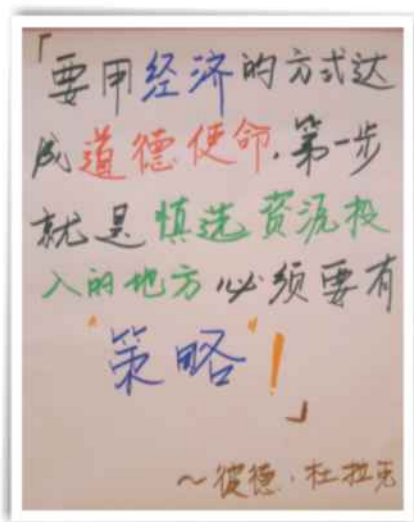 「要用经济的方式达
成道德使命,第一步
就是慎选资源投
入的地方必须要有
"策略"！
」
~彼德·杜拉克